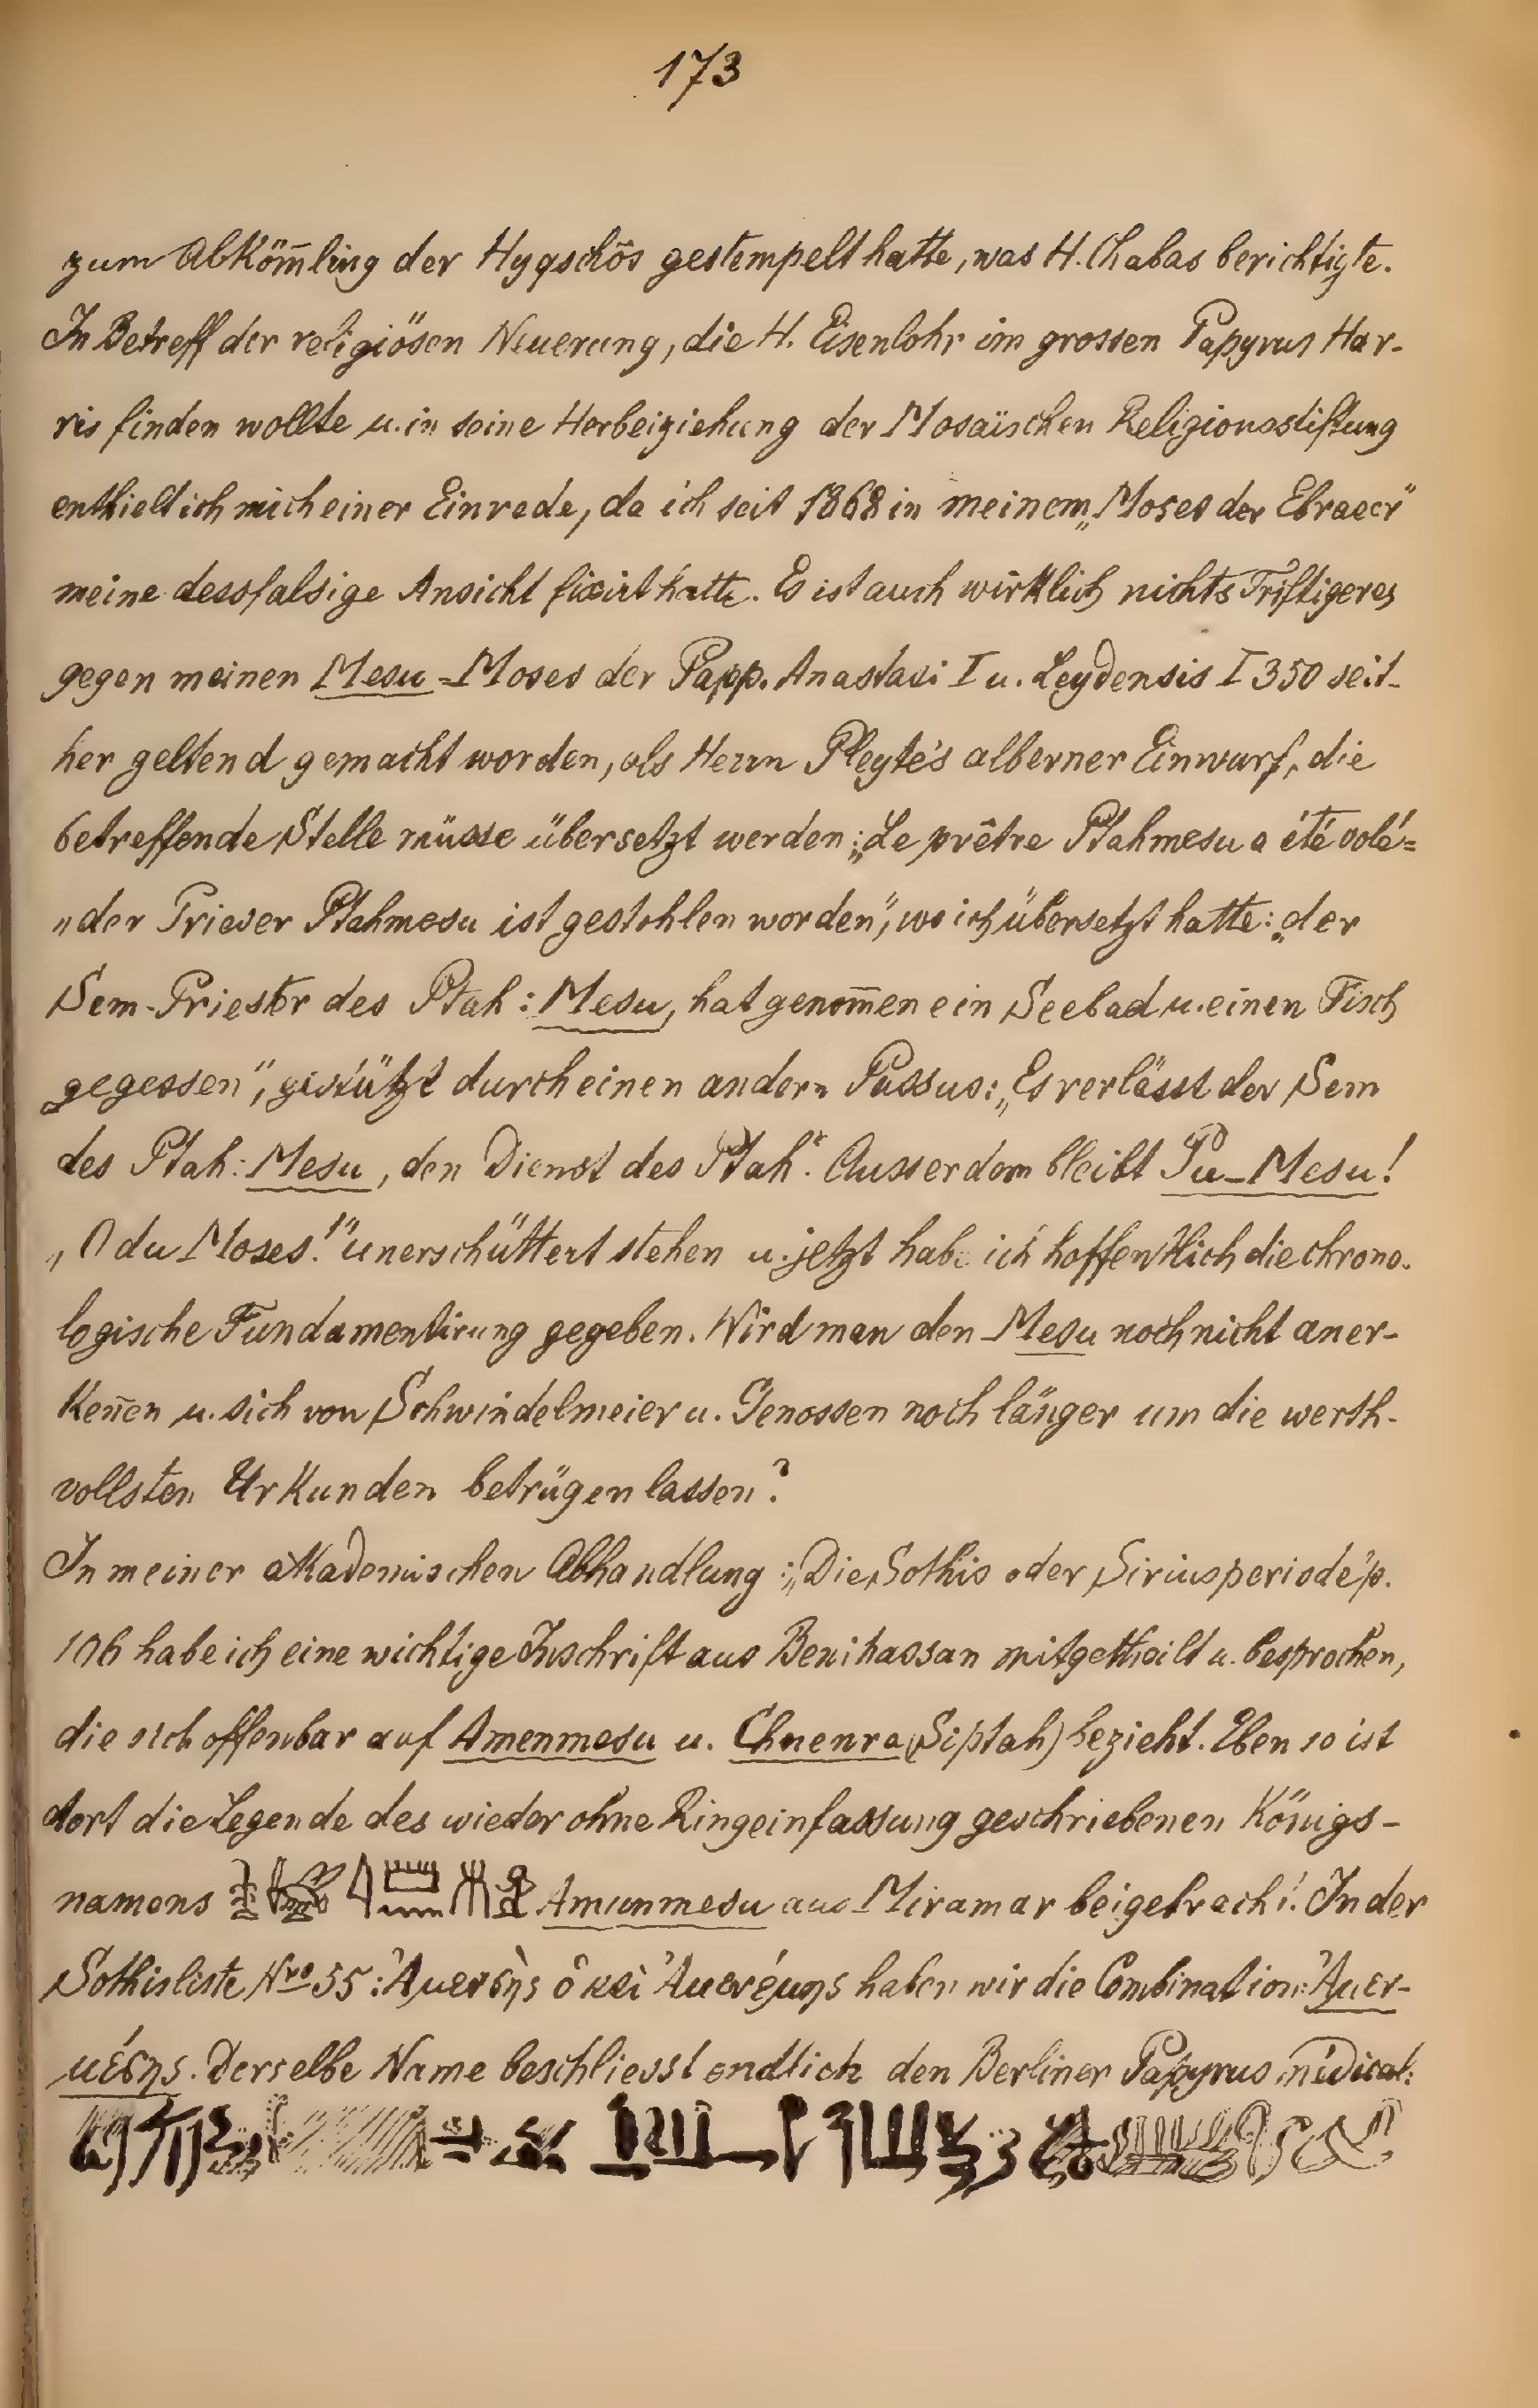 173
zum Abköm̄ling der Hyqschôs gestempelt hatte, was H. Chabas berichtigte.
In Betreff der religiösen Neuerung, die H. Eisenlohr im grossen Papyrus Har-
ris finden wollte u. in seine Herbeiziehung der Mosaïschen Religionsstiftung
enthielt ich mich einer Einrede, da ich seit 1868 in meinem „Moses der Ebraeer"
meine dessfalsige Ansicht fixirt hatte. Es ist auch wirklich nichts Triftigeres
gegen meinen Mesu-Moses der Papp. Anastasi I u. Leydensis I 350 seit-
her geltend gemacht worden, als Herrn Pleyte's alberner Einwurf, die
betreffende Stelle müsse übersetzt werden: „Le prêtre Ptahmesu a été volé=
„der Priester Ptahmesu ist gestohlen worden", wo ich übersetzt hatte: „der
Sem-Priester des Ptah: Mesu, hat genom̄en ein Seebad u. einen Fisch
gegessen", gestützt durch einen andern Passus: „Es verlässt der Sem
des Ptah: Mesu, den Dienst des Ptah". Ausserdem bleibt Pu-Mesu!
„O du Moses!" unerschüttert stehen u. jetzt habe ich hoffentlich die chrono-
logische Fundamentirung gegeben. Wird man den Mesu noch nicht aner-
ken̄en u. sich von Schwindelmeier u. Genossen noch länger um die werth-
vollsten Urkunden betrügen lassen?
In meiner akademischen Abhandlung: „Die Sothis oder Siriusperiode" p.
106 habe ich eine wichtige Inschrift aus Benihassan mitgetheilt u. besprochen,
die sich offenbar auf Amenmesu u. Chuenra (Siptah) bezieht. Eben so ist
dort die Legende des wieder ohne Ringeinfassung geschriebenen Königs-
namens Amunmesu aus Miramar beigebracht. In der
Sothisliste Nro 55: ὁ καὶ haben wir die Combination:
Derselbe Name beschliesst endlich den Berliner Papyrus médical: